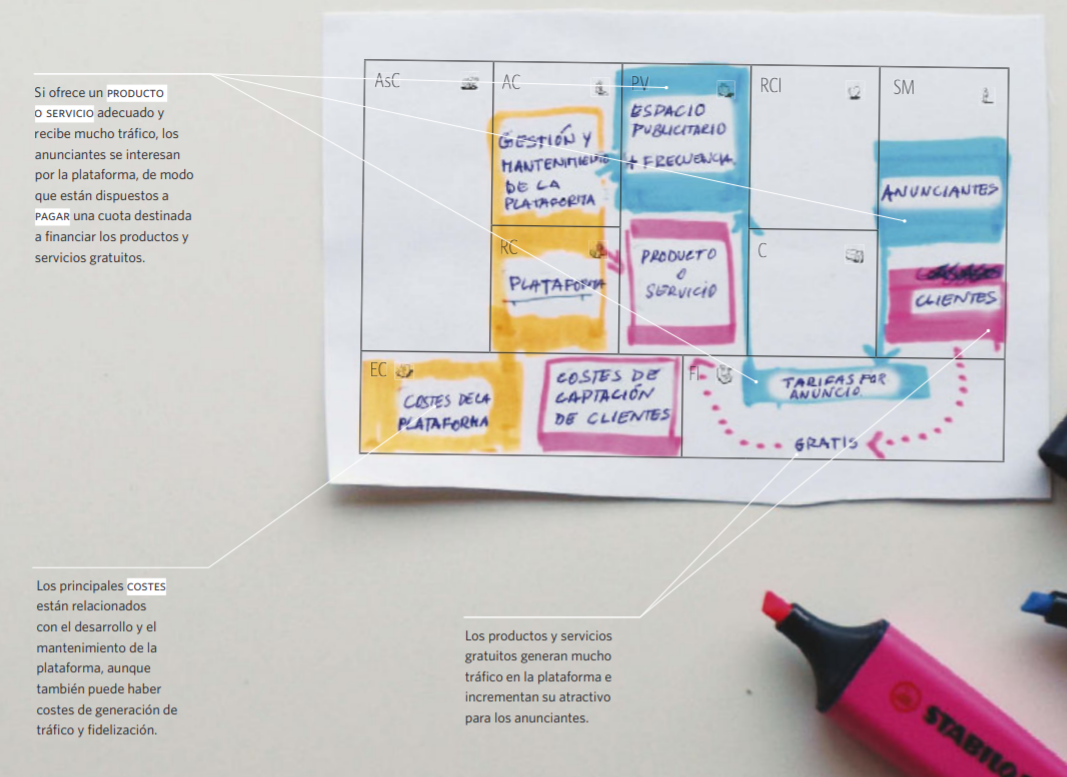 Si ofrece un PRODUCTO
O SERVICIO adecuado y
recibe mucho tráfico, los
anunciantes se interesan
por la plataforma, de modo
que están dispuestos a
PAGAR una cuota destinada
a financiar los productos y
servicios gratuitos.
AsC
AC
GESTIÓN Y
MANTENIMIENTO
DE LA
PLATAFORMA
PV
ESPACIO
PUBLICITARIO
+ FRECUENCIA
RCl
SM
ANUNCIANTES
RC
PLATAFORMA
PRODUCTO
O
SERVICIO
C
CLIENTES
EC
COSTES DE LA
PLATAFORMA
COSTES DE
CAPTACIÓN
DE CLIENTES
FI
TARIFAS POR
ANUNCIO
GRATIS
Los principales COSTES
están relacionados
con el desarrollo y el
mantenimiento de la
plataforma, aunque
también puede haber
costes de generación de
tráfico y fidelización.
Los productos y servicios
gratuitos generan mucho
tráfico en la plataforma e
incrementan su atractivo
para los anunciantes.
STABILO